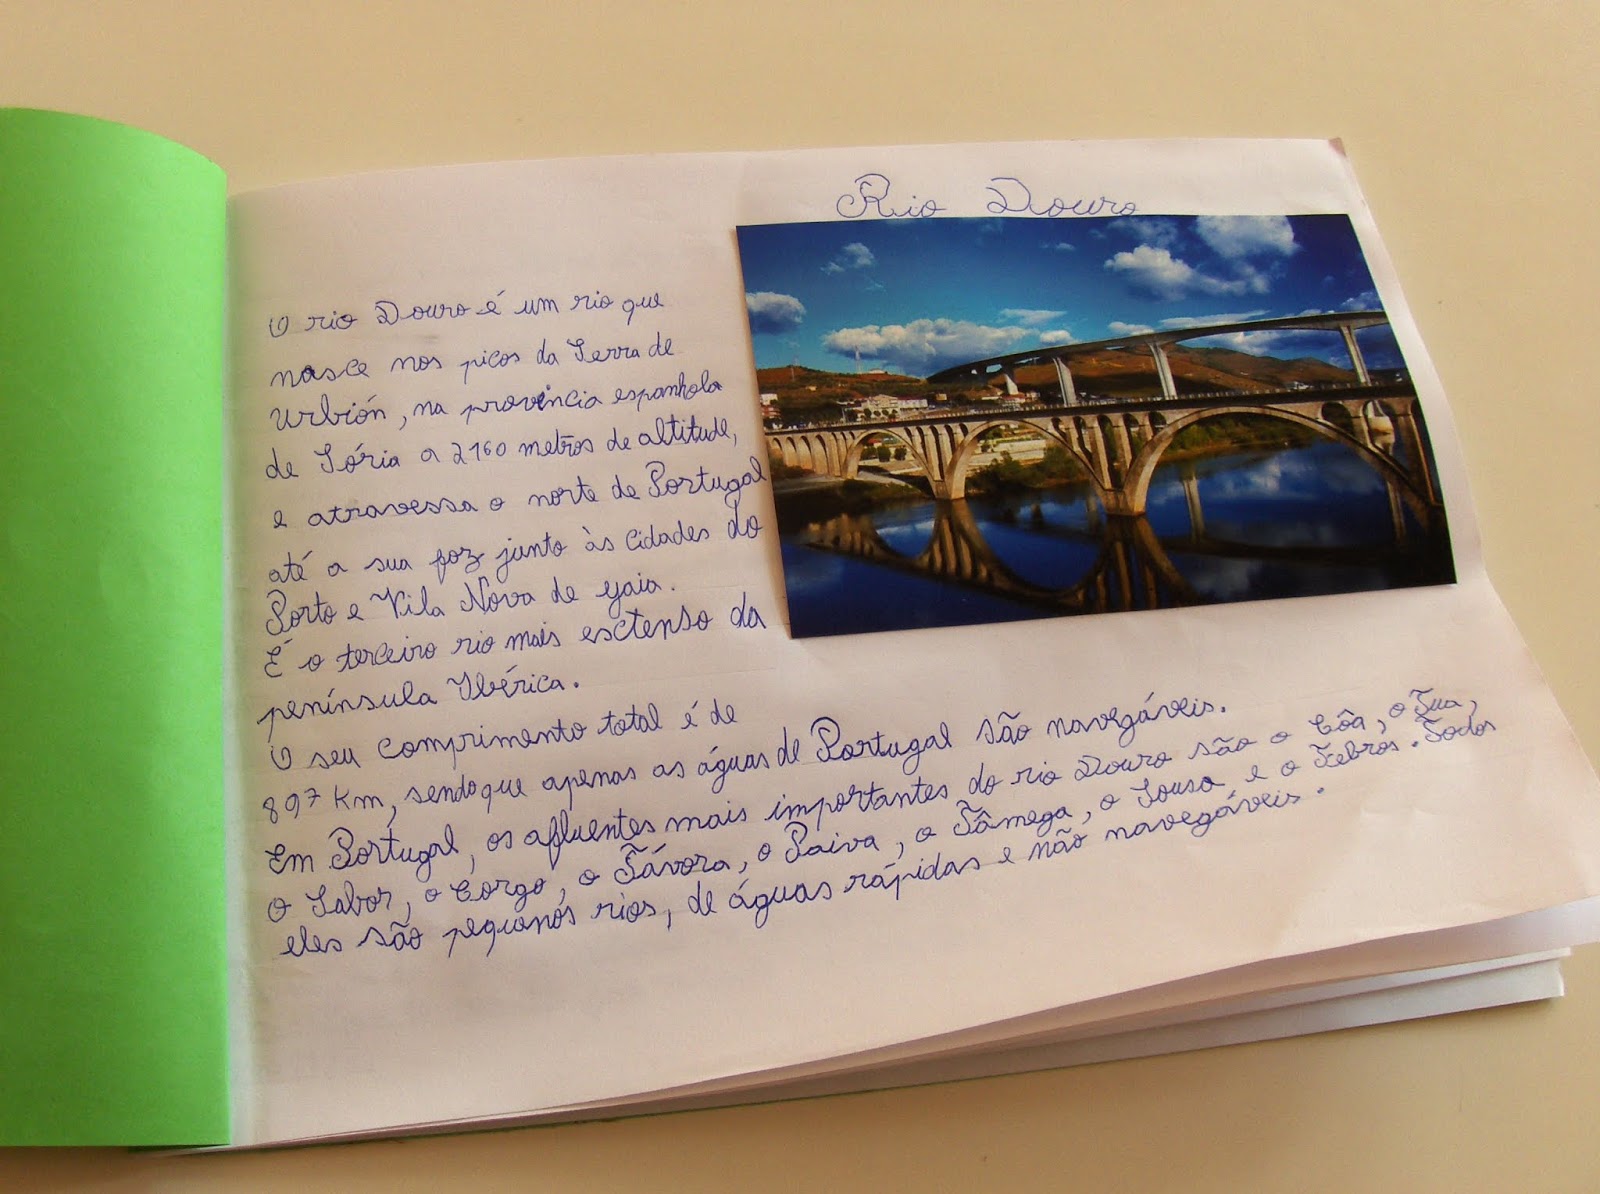 Rio Douro
O rio Douro é um rio que
nasce nos picos da Serra de
Urbión, na província espanhola
de Sória a 2160 metros de altitude,
e atravessa o norte de Portugal
até a sua foz junto às cidades do
Porto e Vila Nova de Gaia.
É o terceiro rio mais esctenso da
península Ibérica.
O seu comprimento total é de
897 Km, sendo que apenas as águas de Portugal são navegáveis.
Em Portugal, os afluentes mais importantes do rio Douro são o Côa, o Tua,
o Sabor, o Corgo, o Távora, o Paiva, o Tâmega, o Sousa e o Tebros. Todos
eles são pequenos rios, de águas rápidas e não navegáveis.